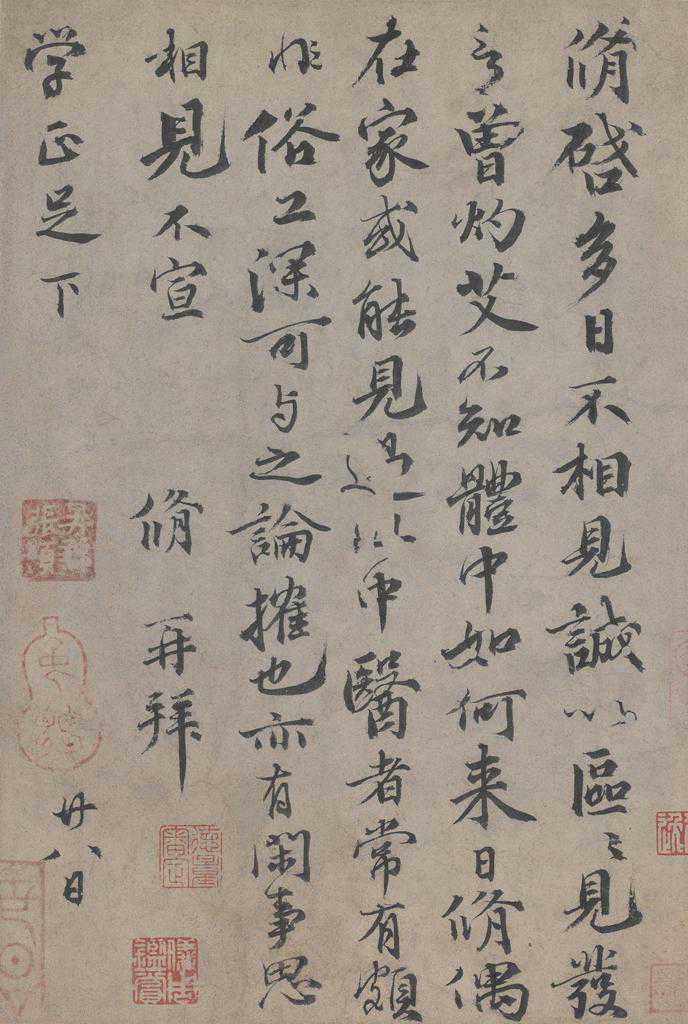 脩啓多日不相見誠以區〻見發
言曾灼艾不知體中如何来日脩偶
在家或能見過此中醫者常有頗
非俗工深可与之論搉也亦有閑事思
相見不宣 脩 再拜
学正足下 廿八日